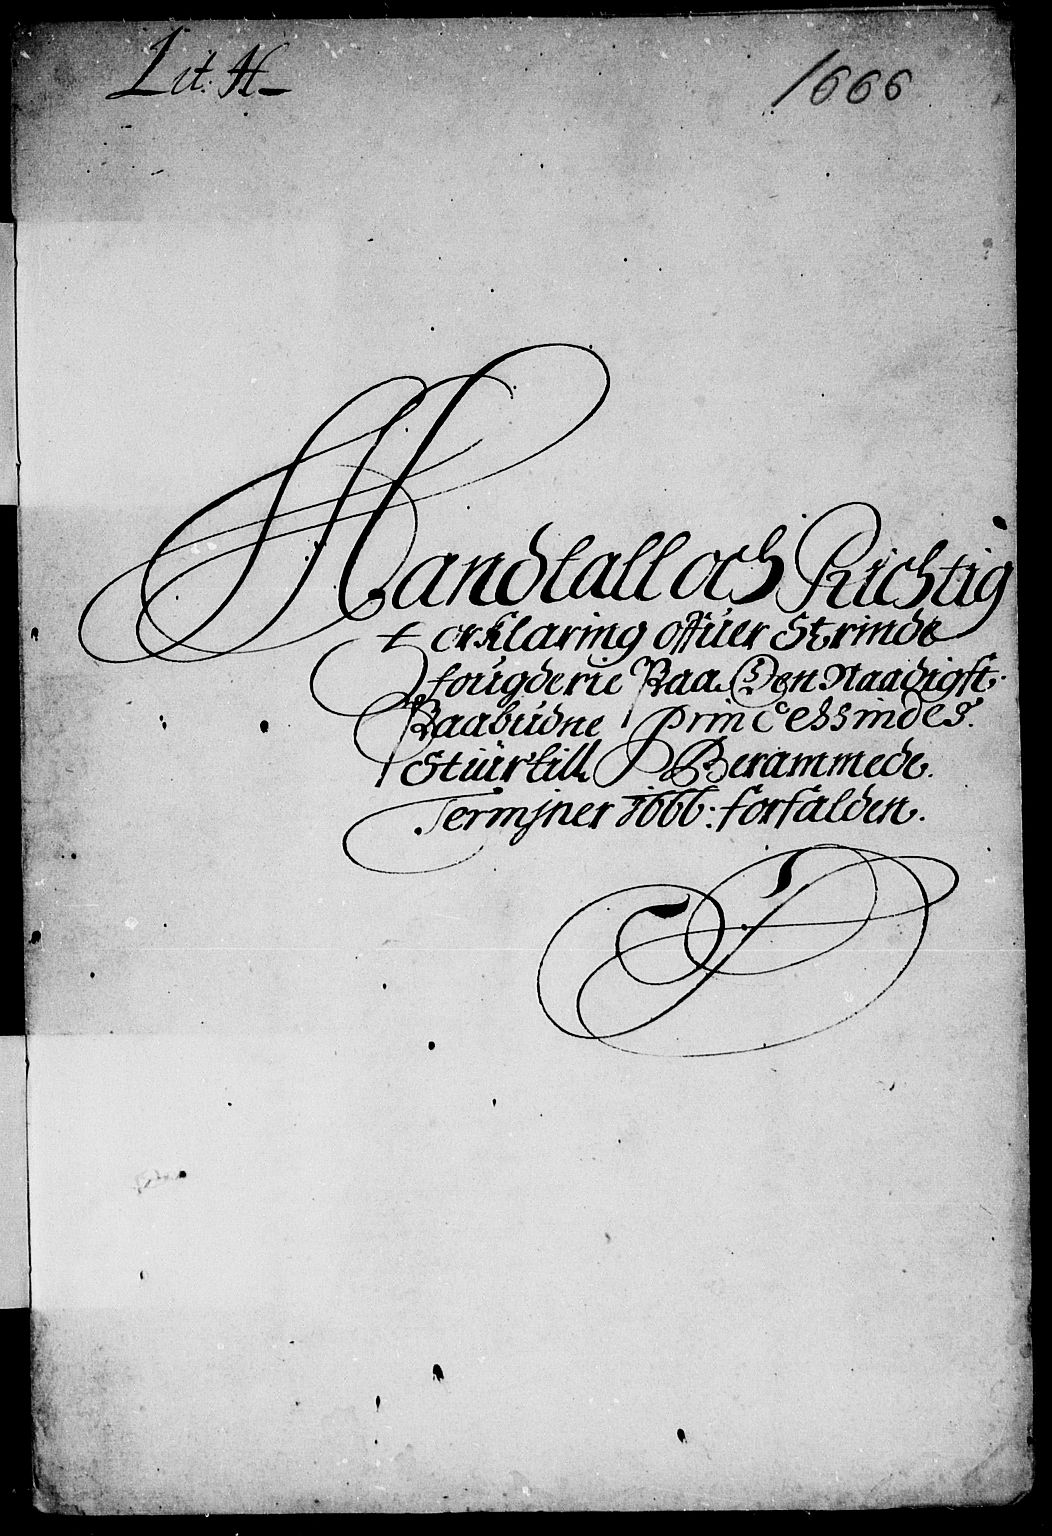 Lit: H
1666
Mandtall och Richtig
forklaring offuer Strinde
fougderie Paa Den Naadigst
Paabudne Princessindes
Stüür till Berammede.
Termjner 1666. forfalden.